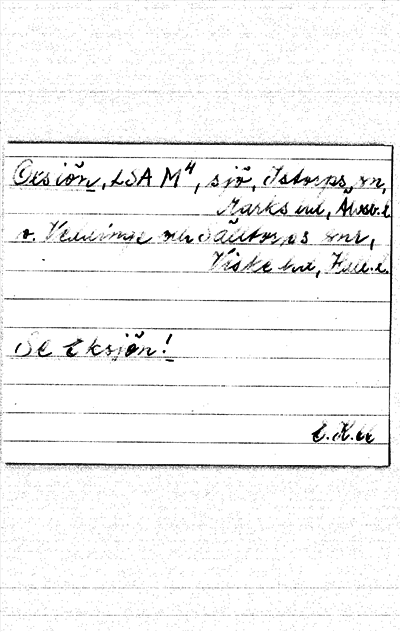 Oksiön, LSA M⁴, sjö, Istorps sn,
Marks hd, Älvsb. l.
o. Veddinge och Sällstorps snr,
Viske hd, Hall. l.
Se Eksjön!